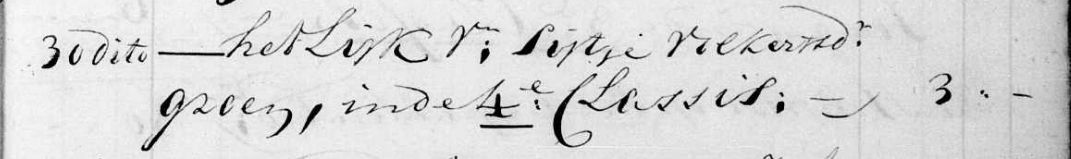 30 dito — het Lijk Vn; Sijtje Volkertsdr:
groen, in de 4e: Classis; — 3 . -